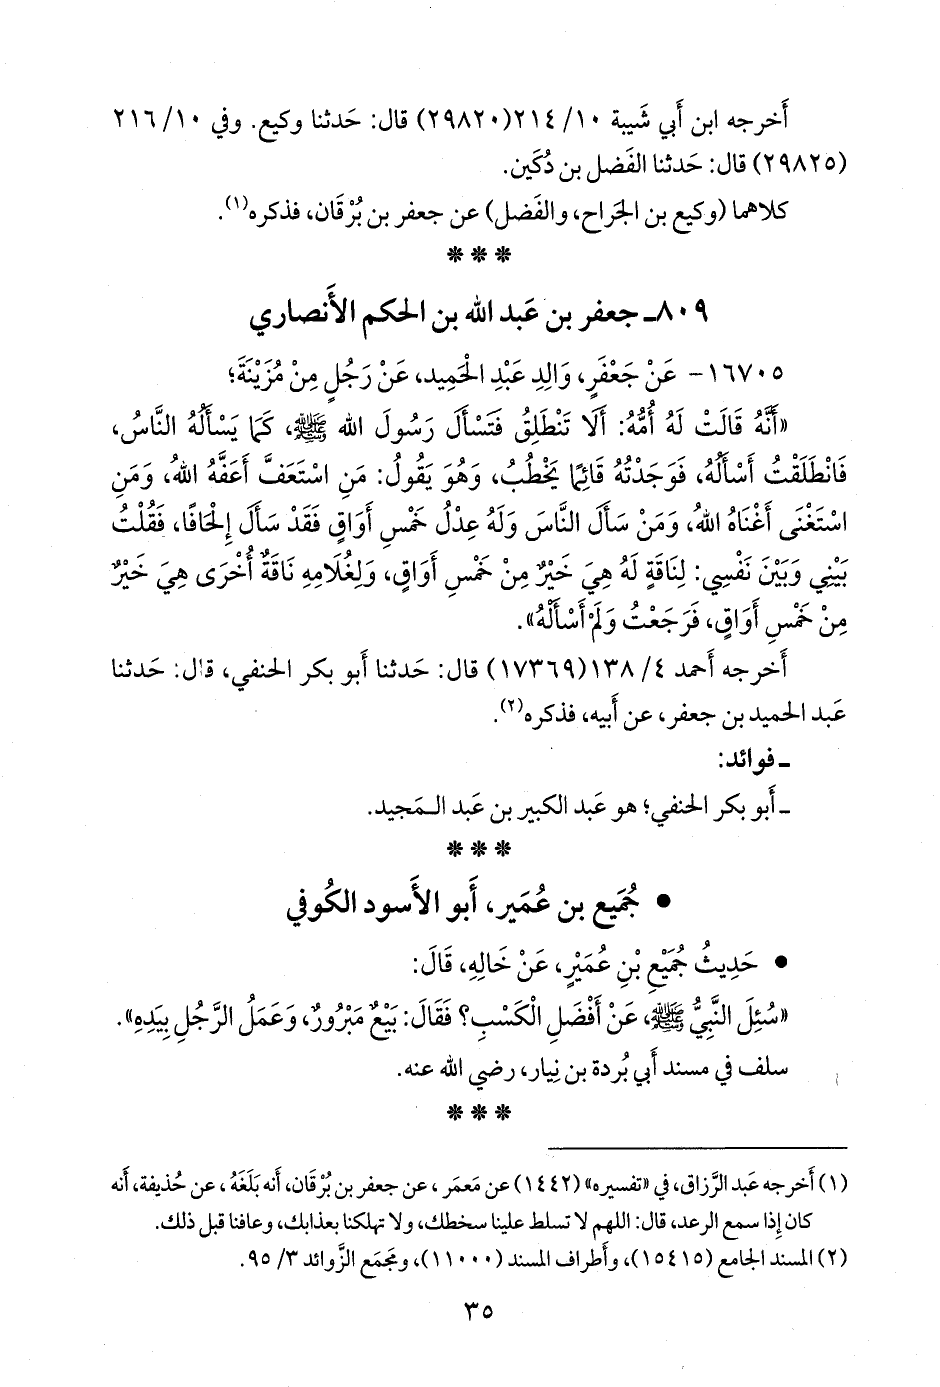 أَخرجه ابن أَبي شَيبة ١٠/ ٢١٤(٢٩٨٢٠) قال: حَدثنا وكيع. وفي ١٠/ ٢١٦
(٢٩٨٢٥) قال: حَدثنا الفَضل بن دُكَين.
كلاهما (وكيع بن الجَراح، والفَضل) عن جعفر بن بُرْقَان، فذكره(١).
* * *
٨٠٩ـ جعفر بن عَبد الله بن الحكم الأَنصاري
١٦٧٠٥- عَنْ جَعْفَرٍ، وَالِدِ عَبْدِ الْحَمِيدِ، عَنْ رَجُلٍ مِنْ مُزَيْنَةَ؛
«أَنَّهُ قَالَتْ لَهُ أُمُّهُ: أَلَا تَنْطَلِقُ فَتَسْأَلَ رَسُولَ الله ﷺ، كَمَا يَسْأَلُهُ النَّاسُ،
فَانْطَلَقْتُ أَسْأَلُهُ، فَوَجَدْتُهُ قَائِمًا يَخْطُبُ، وَهُوَ يَقُولُ: مَنِ اسْتَعَفَّ أَعَفَّهُ اللهُ، وَمَنِ
اسْتَغْنَى أَغْنَاهُ اللهُ، وَمَنْ سَأَلَ النَّاسَ وَلَهُ عِدْلُ خَمْسِ أَوَاقٍ فَقَدْ سَأَلَ إِلْحَافًا، فَقُلْتُ
بَيْنِي وَبَيْنَ نَفْسِي: لِنَاقَةٍ لَهُ هِيَ خَيْرٌ مِنْ خَمْسِ أَوَاقٍ، وَلِغُلَامِهِ نَاقَةٌ أُخْرَى هِيَ خَيْرٌ
مِنْ خَمْسِ أَوَاقٍ، فَرَجَعْتُ وَلَمْ أَسْأَلْهُ».
أَخرجه أَحمد ٤/ ١٣٨(١٧٣٦٩) قال: حَدثنا أَبو بكر الحنفي، قال: حَدثنا
عَبد الحميد بن جعفر، عن أَبيه، فذكره(٢).
ـ فوائد:
ـ أَبو بكر الحنفي؛ هو عَبد الكبير بن عَبد الـمَجيد.
* * *
• جُمَيع بن عُمَير، أَبو الأَسود الكُوفي
• حَدِيثُ جُمَيْعِ بْنِ عُمَيْرٍ، عَنْ خَالِهِ، قَالَ:
«سُئِلَ النَّبِيُّ ﷺ، عَنْ أَفْضَلِ الْكَسْبِ؟ فَقَالَ: بَيْعٌ مَبْرُورٌ، وَعَمَلُ الرَّجُلِ بِيَدِهِ».
سلف في مسند أَبي بُردة بن نِيار، رضي الله عنه.
* * *
(١) أَخرجه عَبد الرَّزاق، في «تفسيره» (١٤٤٢) عن مَعمَر، عن جعفر بن بُرْقان، أَنه بَلَغَهُ، عن حُذيفة، أَنه
كان إِذا سمع الرعد، قال: اللهم لا تسلط علينا سخطك، ولا تهلكنا بعذابك، وعافنا قبل ذلك.
(٢) المسند الجامع (١٥٤١٥)، وأَطراف المسند (١١٠٠٠)، ومَجمَع الزَّوائد ٣/ ٩٥.
٣٥